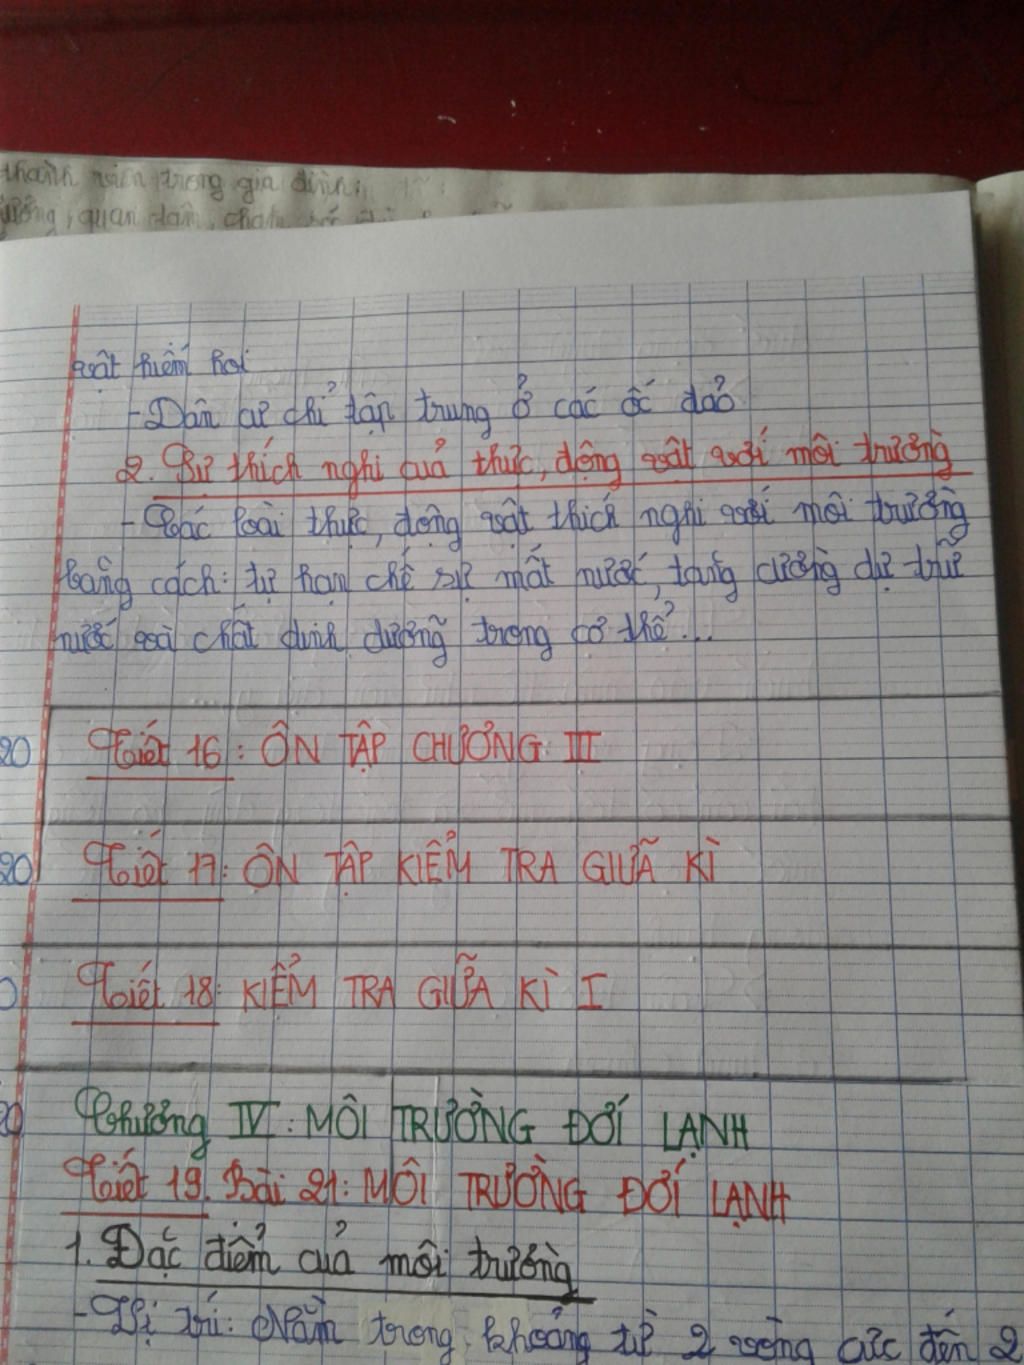 thành viên trong gia đình,
quan tâm, chăm
vật hiếm hoi
- Dân cư chỉ tập trung ở các ốc đảo
2. Sự thích nghi của thực, động vật với môi trường
- Các loài thực, động vật thích nghi với môi trường
bằng cách: tự hạn chế sự mất nước, tăng cường dự trữ
nước và chất dinh dưỡng trong cơ thể...
20 Tiết 16: ÔN TẬP CHƯƠNG III
20 Tiết 17: ÔN TẬP KIỂM TRA GIỮA KÌ
Tiết 18: KIỂM TRA GIỮA KÌ I
20 Chương IV: MÔI TRƯỜNG ĐỚI LẠNH
Tiết 19. Bài 21: MÔI TRƯỜNG ĐỚI LẠNH
1. Đặc điểm của môi trường
- Vị trí: Nằm trong khoảng từ 2 vòng cực đến 2